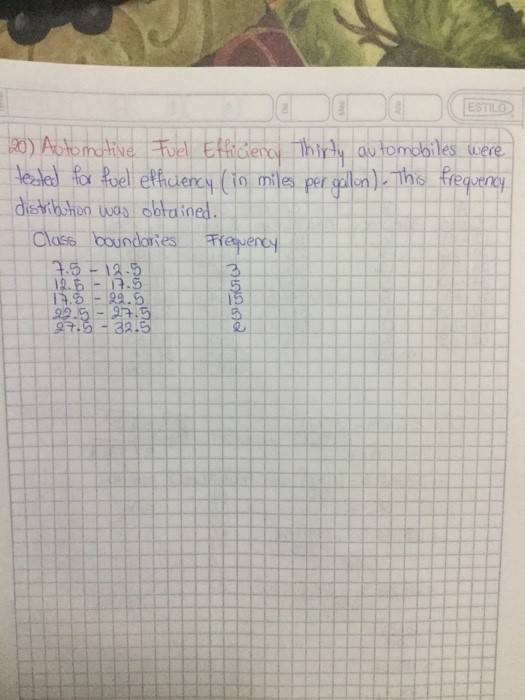 ESTILO
20) Automotive Fuel Efficiency Thirty automobiles were
tested for fuel efficiency (in miles per gallon). This frequency
distribution was obtained.
Class boundaries Frequency
7.5 - 12.5 3
12.5 - 17.5 5
17.5 - 22.5 15
22.5 - 27.5 5
27.5 - 32.5 2